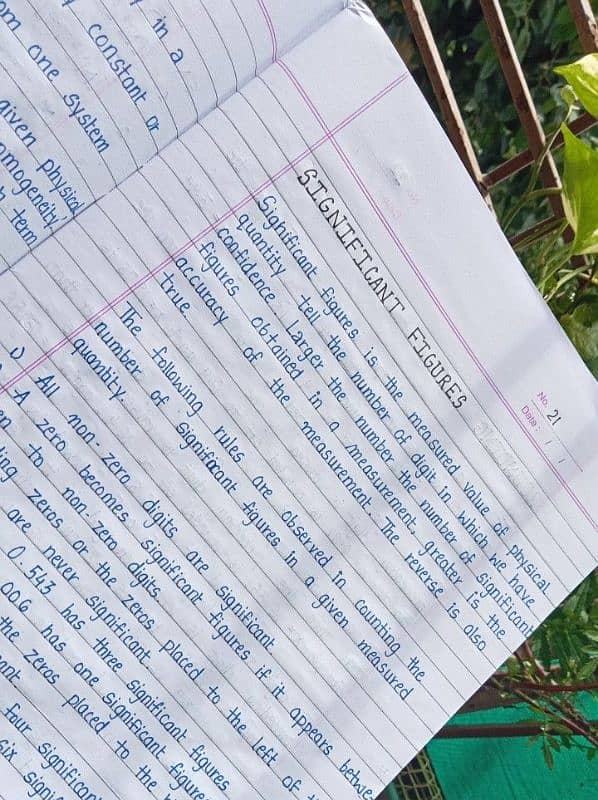 in a
constant or
om one system
given physical
omogeneity
term
No. 21
Date: / /
SIGNIFICANT FIGURES
Significant figures is the measured value of physical
quantity tell the number of digit in which we have
confidence. Larger the number the number of significant
figures obtained in a measurement, greater is the
accuracy of the measurement. The reverse is also
true
The following rules are observed in counting the
number of significant figures in a given measured
quantity.
All non-zero digits are significant
A zero becomes significant figures if it appears betwe
en to non-zero digits
ing zeros or the zeros placed to the left of
are never significant.
0.543 has three significant figures
006 has one significant figures
the zeros placed to the
ant
four significan
six signi